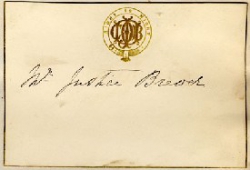 Mr Justice Brewer